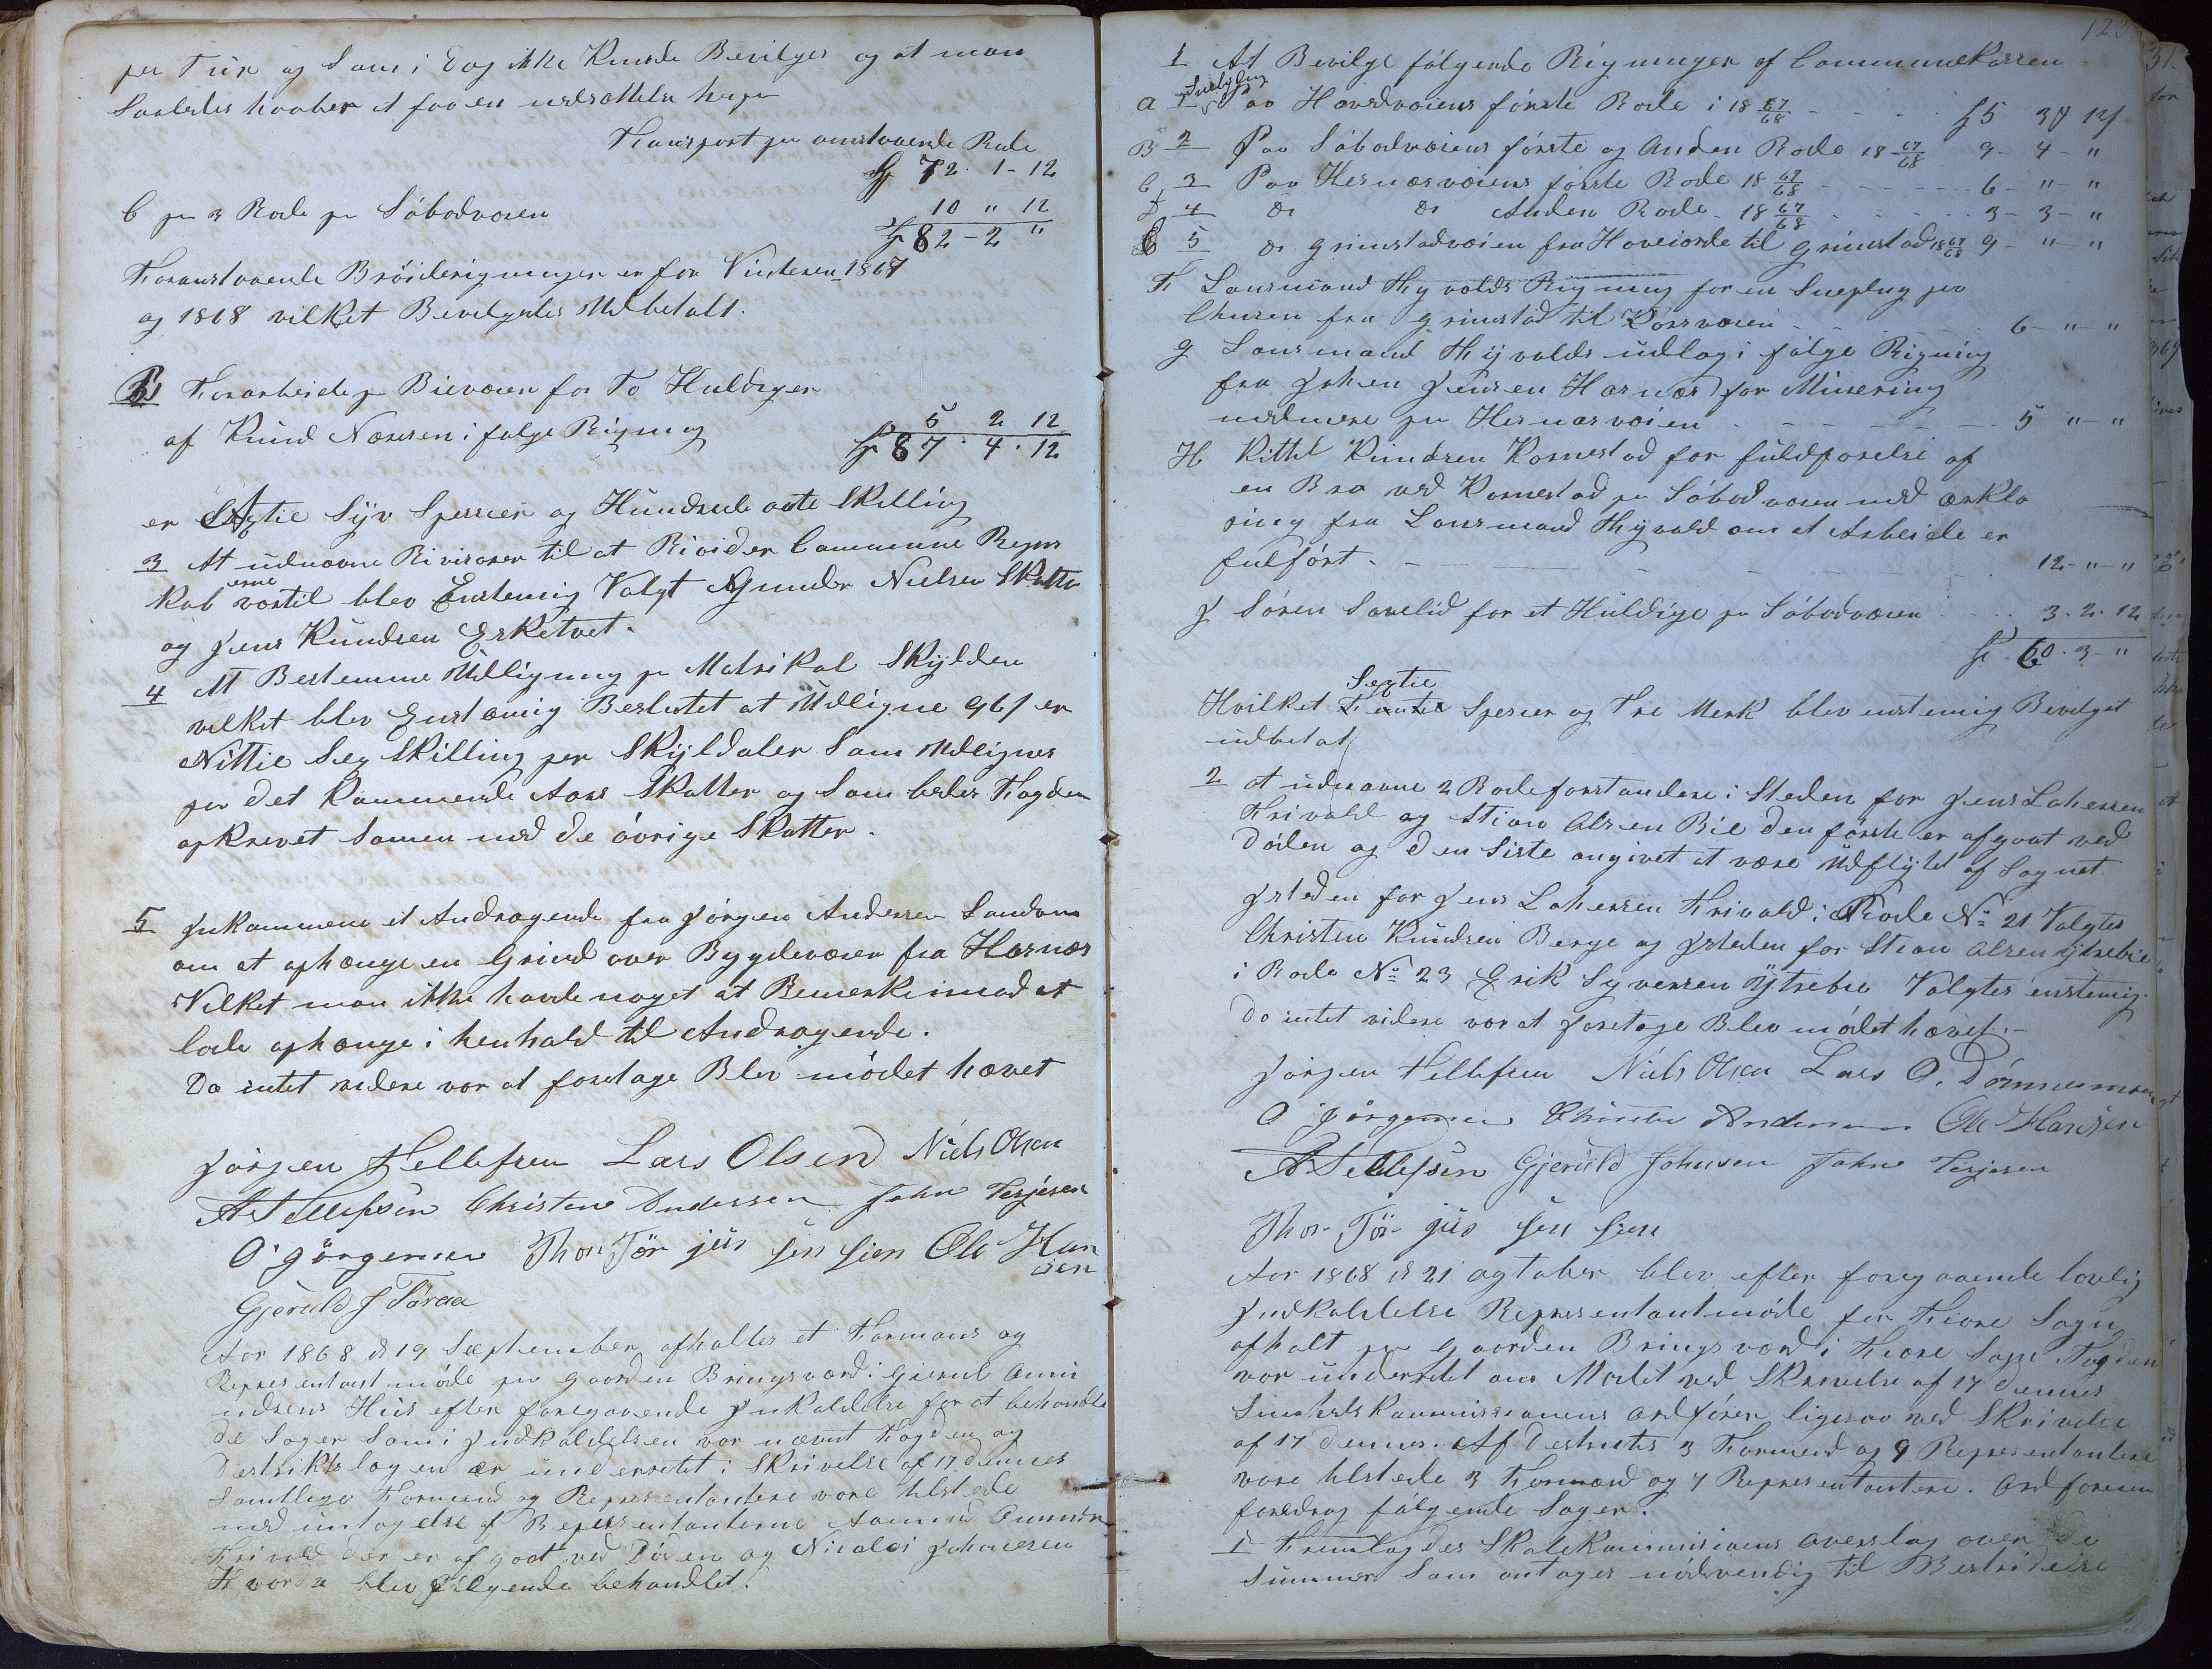 per Tür og Som i Dag ikke Kunde Bevilges og at man
Saaledes haaber at faa en
Transport pr omstaaende Rode
72 - 1 - 12
C pr 3 Rode pr Söbodvæien
10 " 12
82 - 2 "
Foranstaaende Bröiterigninger er for Vinteren 1867
og 1868 vilket Bevilgedes Udbetalt.
Forarbeide pr Bieveien for To Huldiger
af Knud Næsesen i følge Rigning
5 2 12
87 . 4 . 12
er Sÿv Specier og Hundrede otte Skilling
3 At udnævne Rivisorer til at Rivider Commune Regns
kaberne vortil blev Enstemig Valgt Gunder Nielsen
og Jens Knudsen Eskedvet.
4 At Bestemme Udligning pr Matrikul Skylden
vilket blev Enstemig Beslutet at Udligne 96 s er
Nittie Sex Skilling per Skÿldaler Som Udlignes
per det Kommende Aars Skatter og Som bedes Fogden
opkrevet Samen med de övrige Skatter.
5 Jnkommene et Andragende fra Jörgen Andersen
om at ophænge en Grind over Bygdeveien fra Hasnæs
Vilket man ikke havde noget at Bemerke imod at
lade ophænge i henhold til Andragende.
Da intet videre var at foretage Blev mödet hævet
Jörgen Tellefsen Lars Olsen Niels Olsen
A Tellefsen Christen Andersen John Terjesen
O Jörgensen Thor Tör jüs sen sien Ole Han
sen
Gjeruld J
Aar 1868 d 19 September afholtes et Formans og
Representantmöde per gaarden Bringsværd i Gierul
Hüs efter foregaaende Jnkaldelse for at behandle
de Sager Som i Jndkaldelsen var nævnt Fogden og
Destrikts lagen er underrettet i Skrivelse af 17 dennes
Samtlige Formend og Representantere vare tilstede
med untagelse f Representanterne Aamund
Frivold der er afgaat ved Döden og Nicolai Johnesen
blev fölgende behandlet.
123
1 At Bevilge følgende Rigninger af Communekassen
a 1 Paa Hovedveiens förste Rode i 18 67/68 - - - 5 3 12
B 2 Paa Söbodveiens förste og Anden Rode 18 67/68 9 - 4 - "
C 3 Paa Hesnæsveiens förste Rode 18 67/68 - - - 6 - " - "
D 4 do do Anden Rode - 18 67/68 - - - 3 - 3 - "
5 do grimstadveien fra til grimstad 18 67/68 9 - " - "
F Lensmand Frÿvolds Rigning for en Sneplog per
fra grimstad til - - - 6 - " - "
g Lensmand Frÿvolds üdlag i følge Rigning
fra Johen Jensen Hasnæs for Minering
medmere per Hesnæsveien - - - 5 " - "
H Kittel Knudsen Kornestad for füldförelse af
en Bro ved Kornestad pr Söbod veien med erkla
ring fra Lensmand Frÿvold om at Arbeide er
fulfört. - - - 12 - " - "
J Sören for et Huldige pr Söbodveien - - - 3 . 2 . 12
60 . 3 - "
Sextie
Hvilket Specier og Tre Merk blev enstemig Bevilget
üdbetalt
2 at udnævne 2 Rodeforstandere i Steden for Jens Lahersen
Frivold og Stian Alsen Bie den förste er afgaat ved
döden og den Siste angivet at være Udflÿtet af Sognet
Jsteden for Jens Lahersen Frivold i Rode No 21 Valgtes
Christen Knudsen Berge og Jsteden for Stian Alsen ÿtrebie
i Rode No 23 Erik Syversen Ÿtrebie Valgtes enstemig.
Da intet videre var at foretage Blev mödet hævet.
Jörgen Tellefsen Niels Olsen Lars O. Dömmesmoen
O Jörgensen Christen Andersen Ole Hansen
A Tellefsen Gjeruld Johnsen John Terjesen
Thor Tör jüs sen sien
Aar 1868 d 21 agtober blev efter foregaaende lovlig
Jndkaldelse Representantmöde for Fiære Sogn
afholt per gaarden Bringsværd i Fiære Sogn Fogden
var underettet om Mödet ved Skrivelse af 17 dennes
ordförer ligesaa ved Skrivelse
af 17 dennes. Af Destrictes 3 Formend og 9 Representantere
vare tilstede 3 Formænd og 7 Representantere. Ordföreren
foredrog fölgende Sager.
1 Fremlagdes Skolekommisionens overslag over de
Summer Som antages nödvendig til Bestridelse